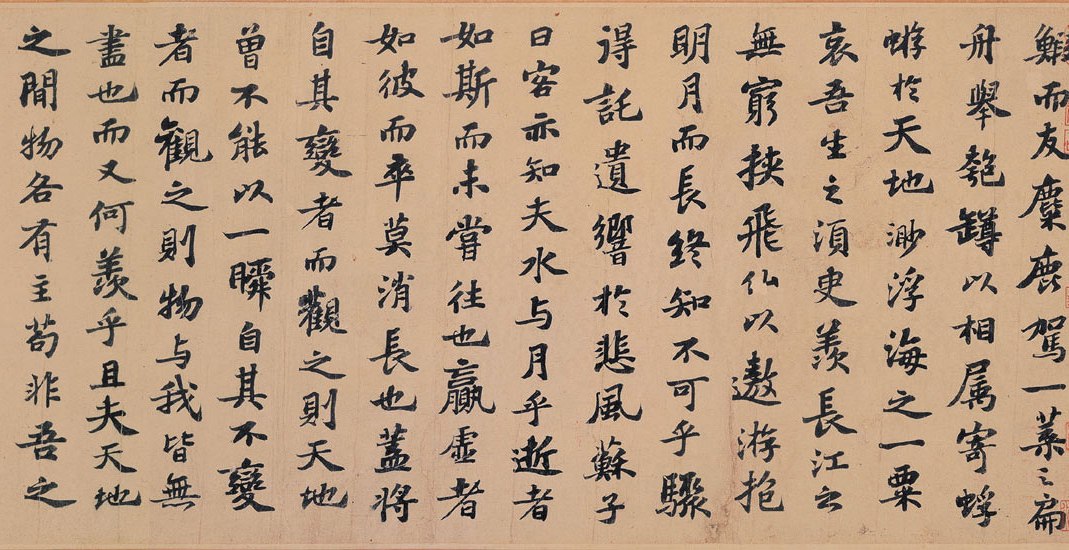 鰕而友麋鹿駕一葉之扁
舟舉匏罇以相属寄蜉
蝣於天地渺浮海之一粟
哀吾生之湏臾羨長江之
無窮挾飛仙以遨游抱
明月而長終知不可乎驟
得託遺響於悲風蘇子
曰客亦知夫水与月乎逝者
如斯而未嘗往也贏虛者
如彼而卒莫消長也蓋將
自其變者而觀之則天地
曾不能以一瞬自其不變
者而觀之則物与我皆無
盡也而又何羨乎且夫天地
之間物各有主苟非吾之